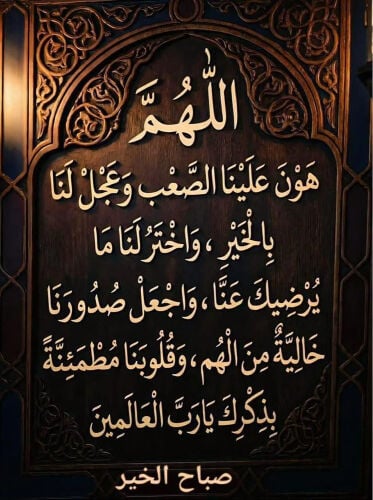 اللّٰهُمَّ
هَوْنَ عَلَيْنَا الصَّعْب وَعَجْلْ لَنَا
بِالْخَيْرِ ، وَاخْتَرْ لَنَا مَا
يُرْضِيكَ عَنَّا، وَاجْعَلْ صُدُورَنَا
خَالِيَّةٌ مِنَ الْهُم ، وَقُلُوبَنَا مُطْمَئِنَّةً
بِذِكْرِكَ يَارَبَّ الْعَالَمِينَ
صباح الخير